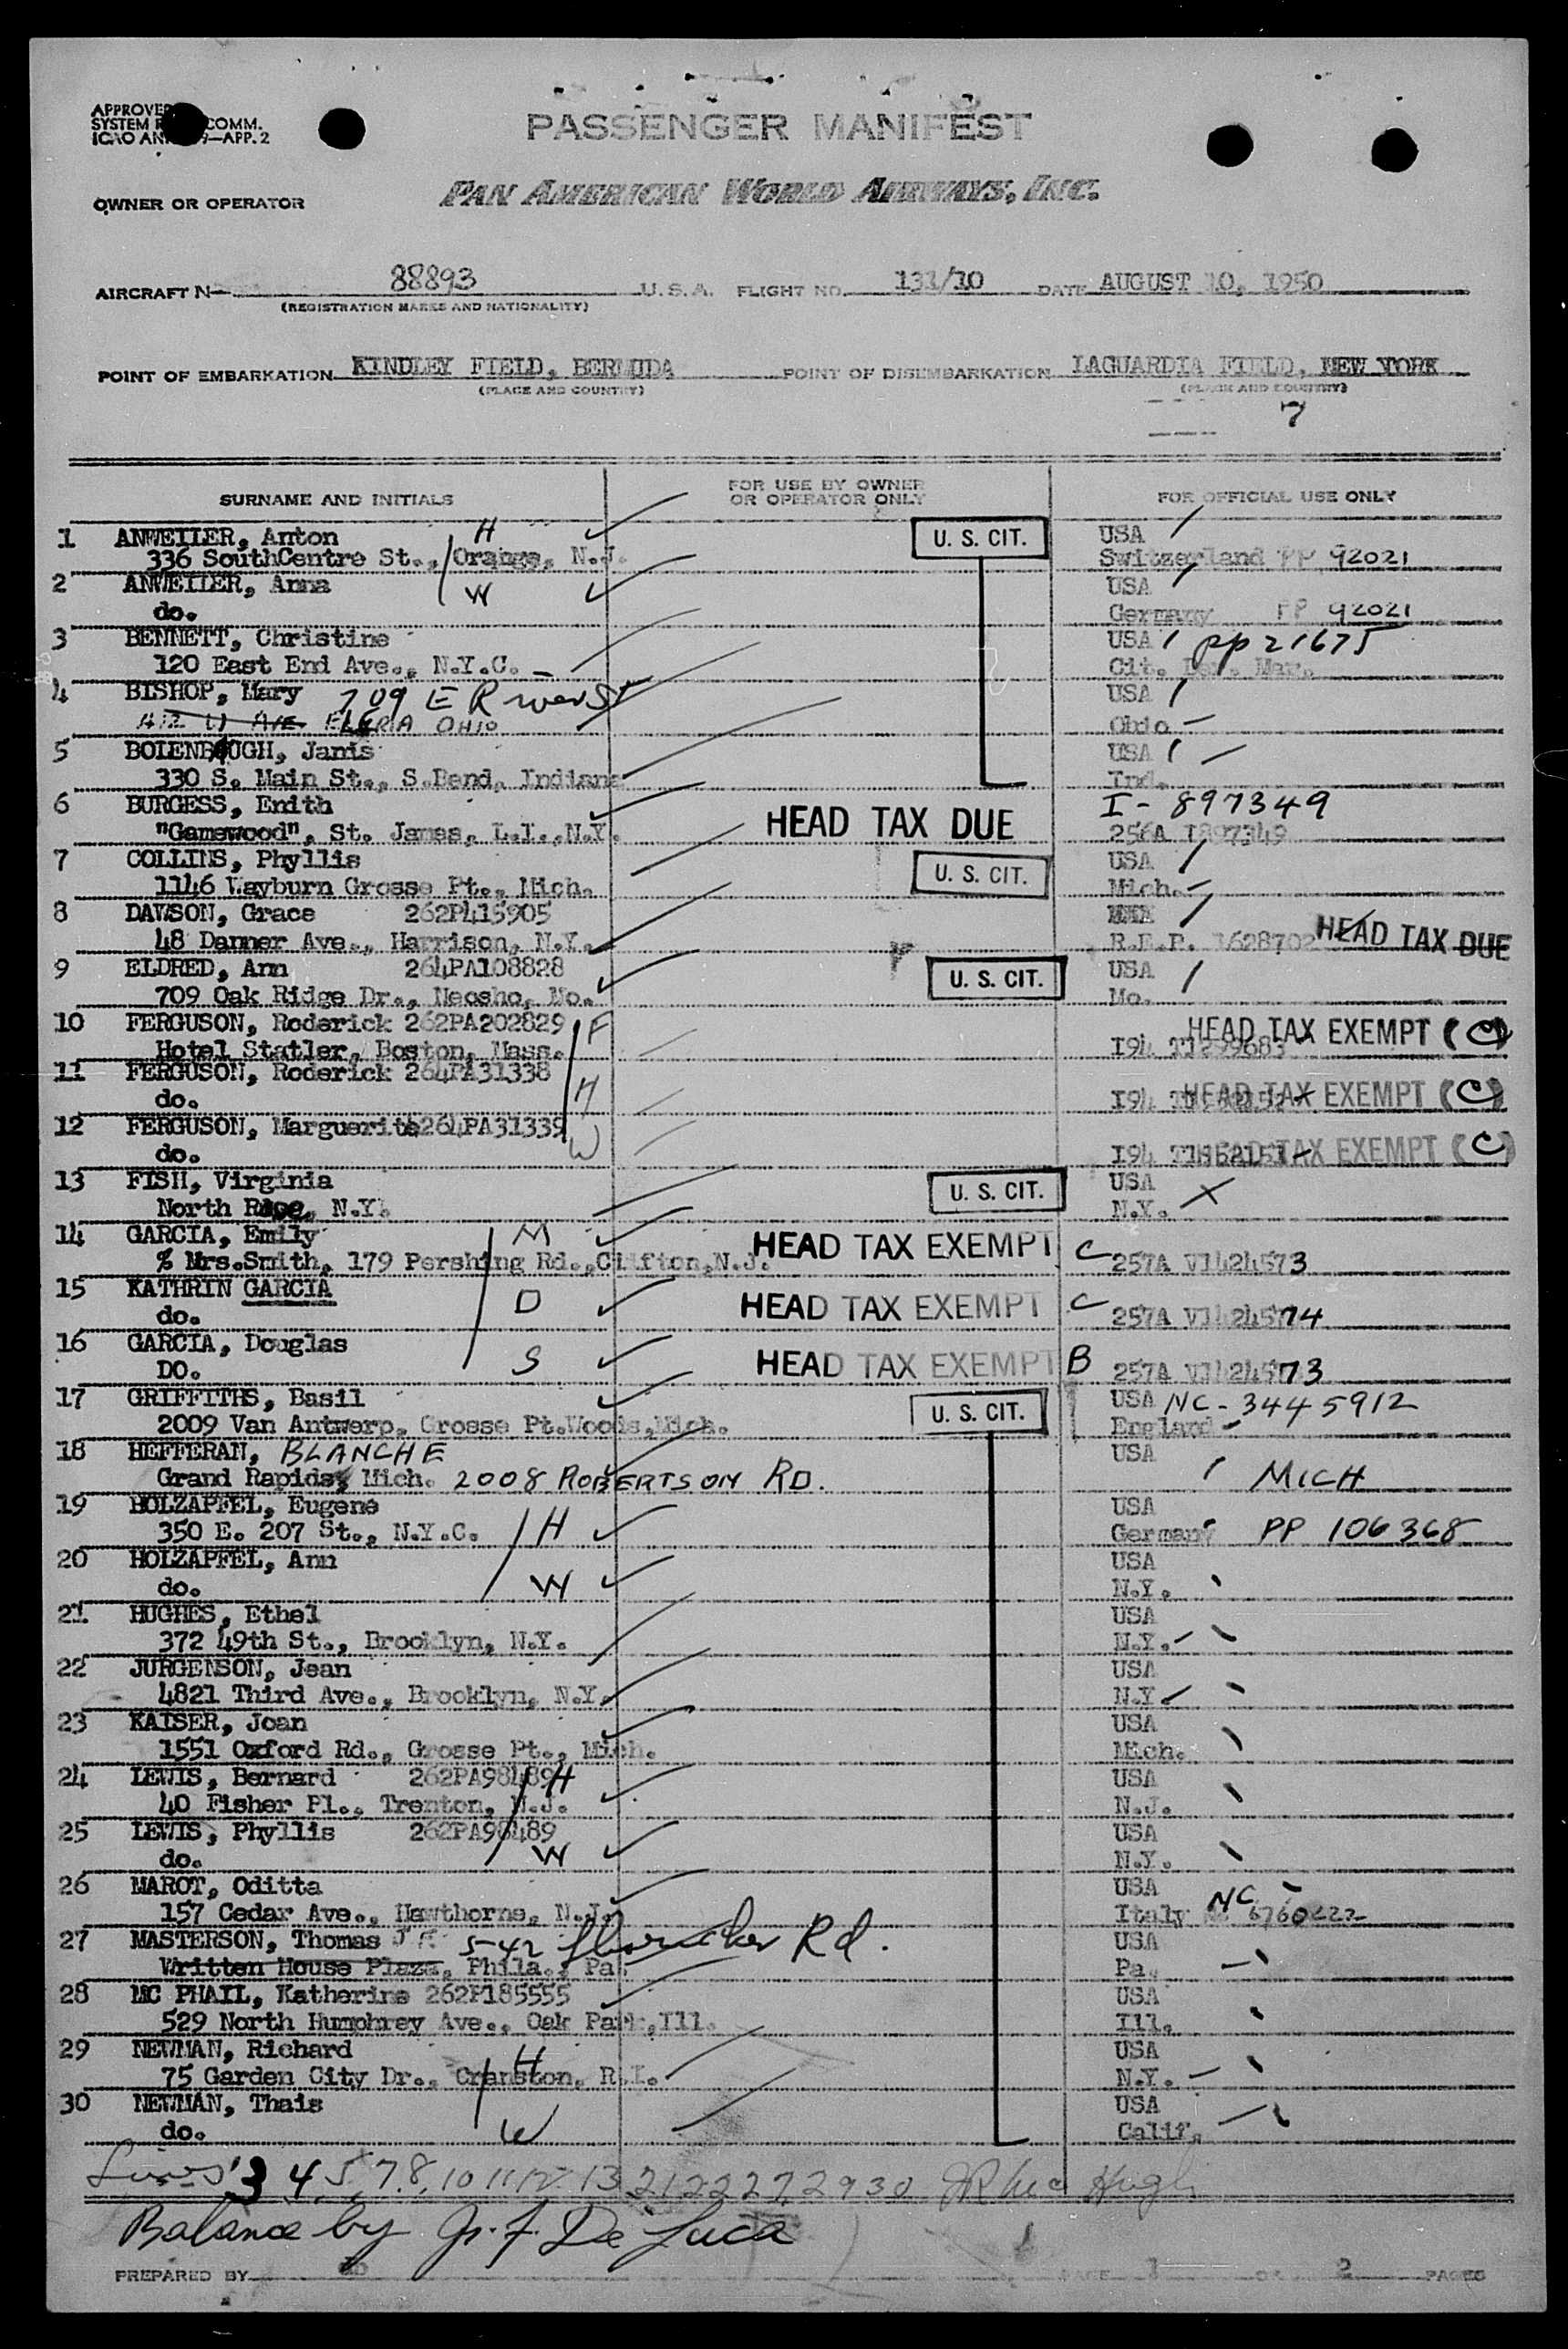 APPROVED
SYSTEM COMM.
ICAO 9—APP. 2
PASSENGER MANIFEST
OWNER OR OPERATOR PAN AMERICAN WORLD AIRWAYS, INC.
AIRCRAFT N— 88893 U.S.A. FLIGHT NO. 131/10 DATE AUGUST 10, 1950
(REGISTRATION MARKS AND NATIONALITY)
POINT OF EMBARKATION KINDLEY FIELD, BERMUDA POINT OF DISEMBARKATION LAGUARDIA FIELD, NEW YORK
(PLACE AND COUNTRY) (PLACE AND COUNTRY)
7
SURNAME AND INITIALS FOR USE BY OWNER OR OPERATOR ONLY FOR OFFICIAL USE ONLY
1 ANWEILER, Anton H U. S. CIT. USA
336 SouthCentre St., Orange, N.J. Switzerland PP 92021
2 ANWEILER, Anna USA
do. W Germany PP 92021
3 BENNETT, Christine USA pp 21675
120 East End Ave., N.Y.C. Cit.
4 BISHOP, Mary 709 E River ST USA
AVE ELYRIA OHIO Ohio
5 BOLENBAUGH, Janis USA
330 S. Main St., S.Bend, Indiana Ind.
6 BURGESS, Enith HEAD TAX DUE I- 897349
"Gamewood", St. James, L.I.,N.Y. 256A I897349
7 COLLINS, Phyllis U. S. CIT. USA
1146 Wayburn Grosse Pt., Mich. Mich.
8 DAWSON, Grace 262P415905
48 Danner Ave., Harrison, N.Y. R.E.P. 1628702 HEAD TAX DUE
9 ELDRED, Ann 264PA108828 U. S. CIT. USA
709 Oak Ridge Dr., Neosho, Mo. Mo.
10 FERGUSON, Roderick 262PA202829 F HEAD TAX EXEMPT (C)
Hotel Statler, Boston, Mass. I94
11 FERGUSON, Roderick 264PA31338 H HEAD TAX EXEMPT (C)
do. I94
12 FERGUSON, Marguerite 264PA31339 W HEAD TAX EXEMPT (C)
do. I94
13 FISH, Virginia U. S. CIT. USA
North Rose, N.Y. N.Y.
14 GARCIA, Emily M HEAD TAX EXEMPT C
% Mrs.Smith, 179 Pershing Rd.,Clifton,N.J. 257A V1424573
15 KATHRIN GARCIA D HEAD TAX EXEMPT C
do. 257A V1424574
16 GARCIA, Douglas S HEAD TAX EXEMPT B
DO. 257A V1424573
17 GRIFFITHS, Basil U. S. CIT. USA NC-3445912
2009 Van Antwerp, Grosse Pt.Woods,Mich. England
18 HEFFERAN, BLANCHE USA
Grand Rapids, Mich. 2008 ROBERTSON RD. MICH
19 HOLZAPFEL, Eugene H USA
350 E. 207 St., N.Y.C. Germany PP 106368
20 HOLZAPFEL, Ann USA
do. W N.Y.
21 HUGHES, Ethel USA
372 49th St., Brooklyn, N.Y. N.Y.
22 JURGENSON, Jean USA
4821 Third Ave., Brooklyn, N.Y. N.Y.
23 KAISER, Joan USA
1551 Oxford Rd., Grosse Pt., Mich. Mich.
24 LEWIS, Bernard 262PA98489 H USA
40 Fisher Pl., Trenton, N.J. N.J.
25 LEWIS, Phyllis 262PA98489 USA
do. W N.Y.
26 MAROT, Oditta USA
157 Cedar Ave., Hawthorne, N.J. Italy NC 6760222
27 MASTERSON, Thomas 542 Rd. USA
Written House Plaza, Phila., Pa. Pa.
28 MC PHAIL, Katherine 262P185555 USA
529 North Humphrey Ave., Oak Park,Ill. Ill.
29 NEWMAN, Richard H USA
75 Garden City Dr., Cranston, R.I. N.Y.
30 NEWMAN, Thais USA
do. W Calif.
Lines 3 4 5, 7.8, 10 11 12 13 21 22 27, 29 30
Balance by J. F. De Luca
PREPARED BY PAGE 1 OF 2 PAGES